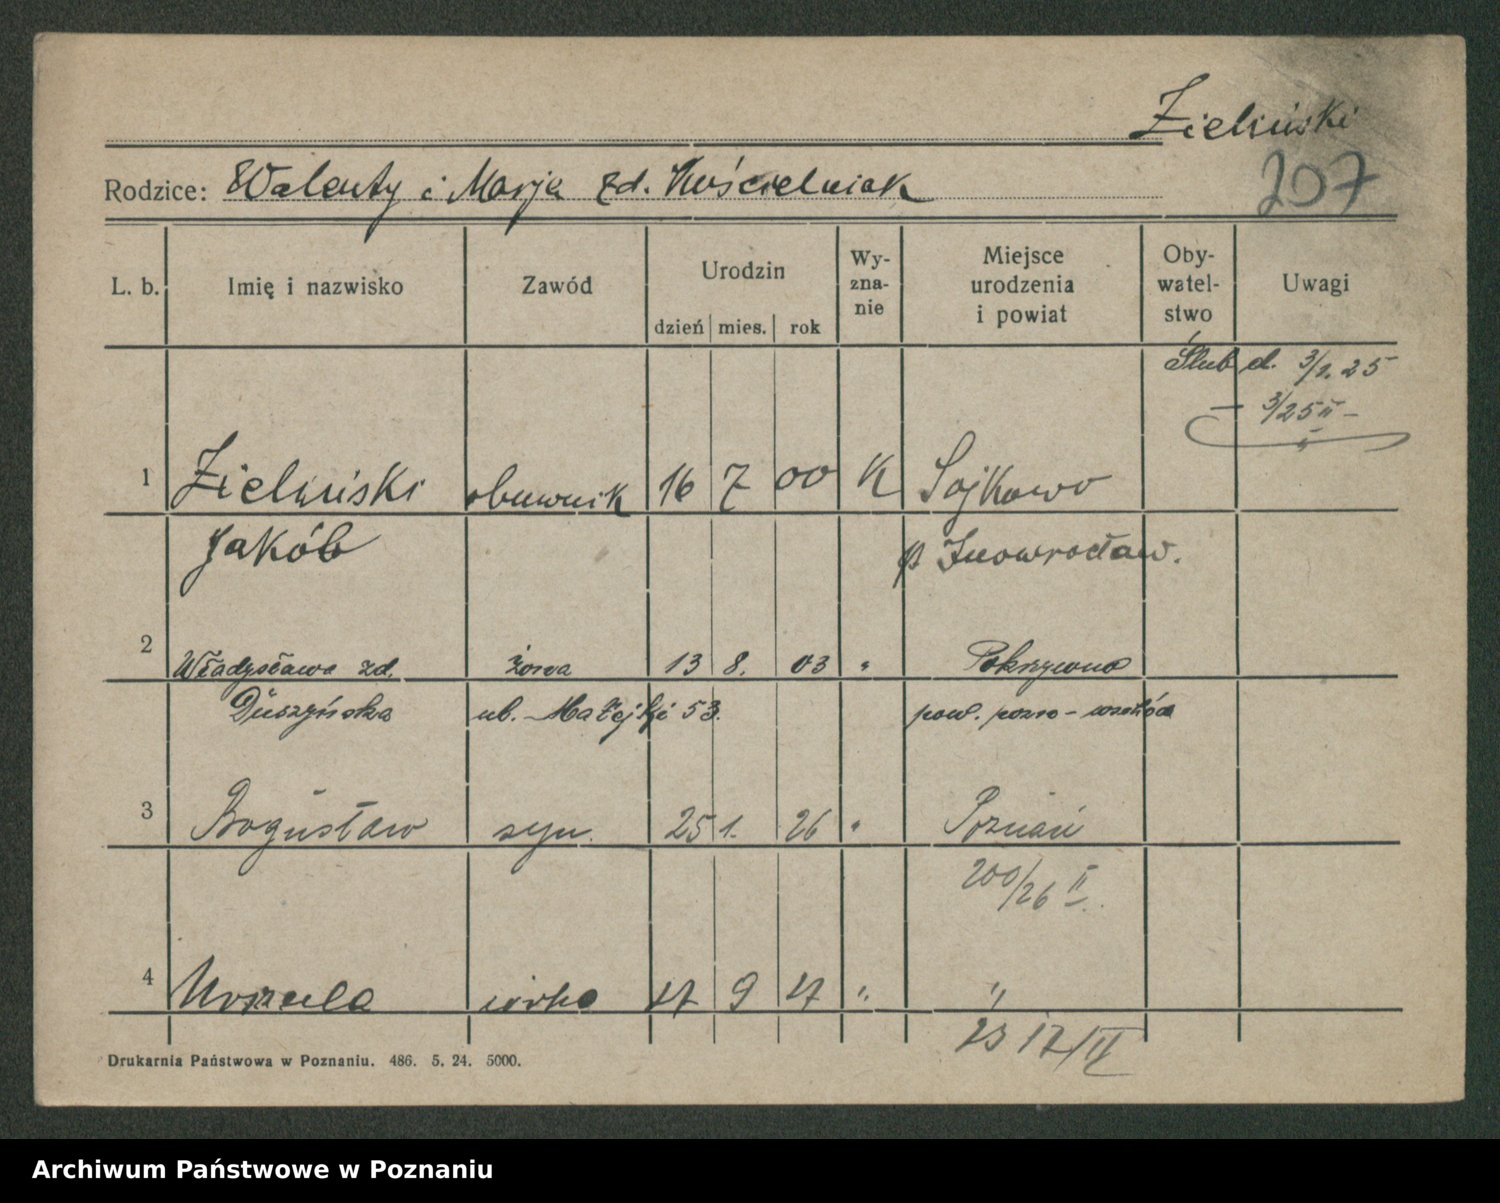 Zieliński
207
Rodzice: Walenty i Marja zd. Kościelniak
L. b. Imię i nazwisko Zawód Urodzin dzień mies. rok Wy-zna-nie Miejsce urodzenia i powiat Oby-watel-stwo Uwagi
Ślub d. 3/1. 25
3/25 II
1 Zieliński obuwnik 16 7 00 K Sójkowo
Jakób p Inowrocław.
2 Władysława zd. żona 13 8. 03 " Pokrzywno
Duszyńska ul. Matejki 53. pow. pozn-wschód
3 Bogusław syn. 25 1. 26 " Poznań
200/26 II
4 Urszula córka 17 9 27 " "
17/II
Drukarnia Państwowa w Poznaniu. 486. 5. 24. 5000.
Archiwum Państwowe w Poznaniu